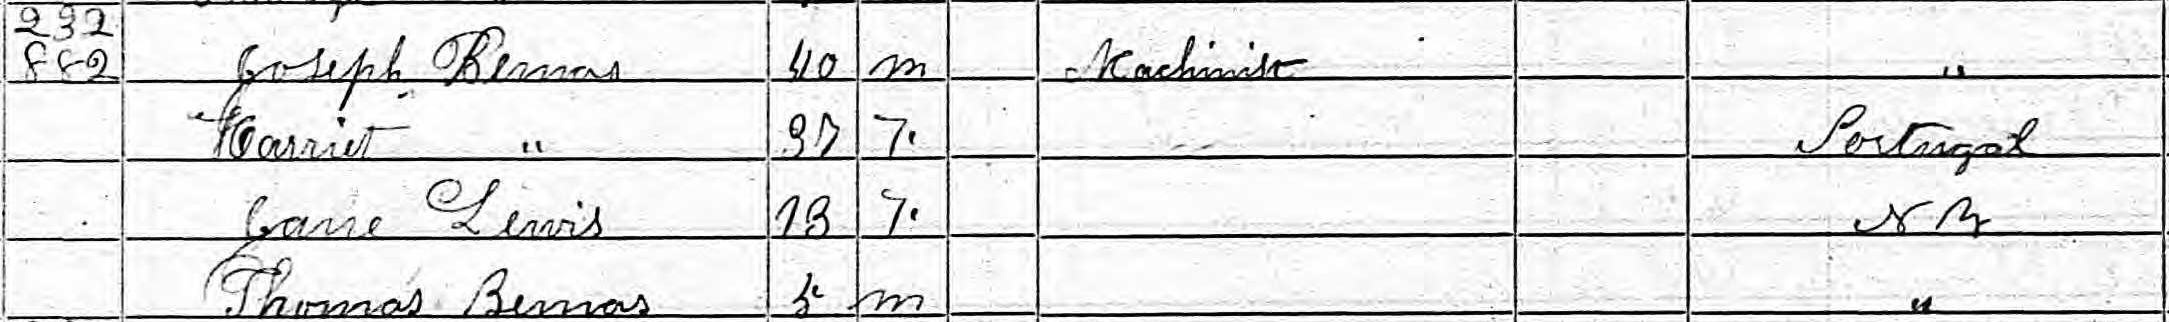 232
882 Joseph Bemas 40 m Machinist "
Harriet " 37 F.
Portugal
Jane Lewis 13 F. N Y
Thomas Bemas 5 m "